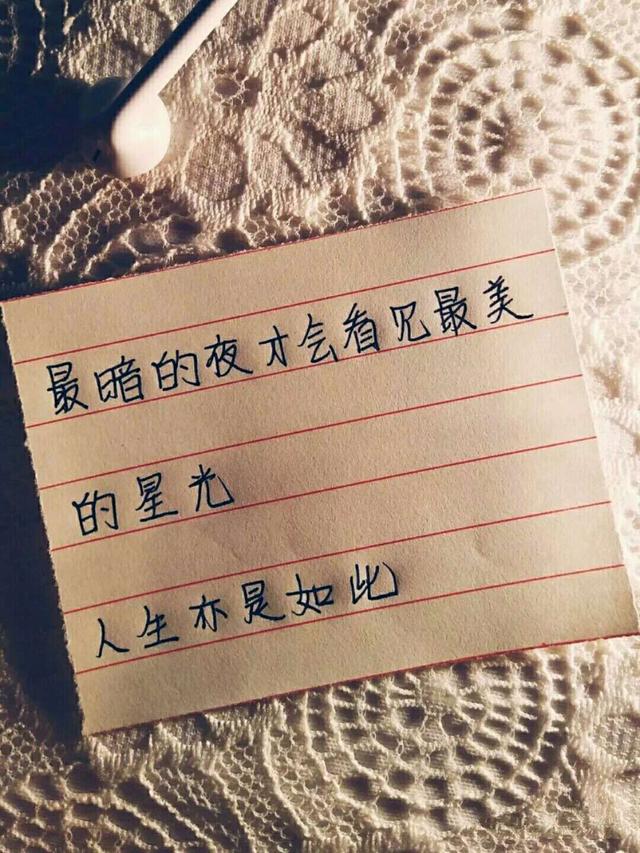 最暗的夜才会看见最美
的星光
人生亦是如此